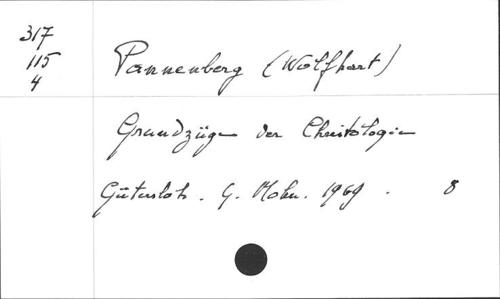 317
115
4
Pannenberg (Wolfhart)
Grundzüge der Christologie
Gütersloh. G. Mohn. 1969. 8